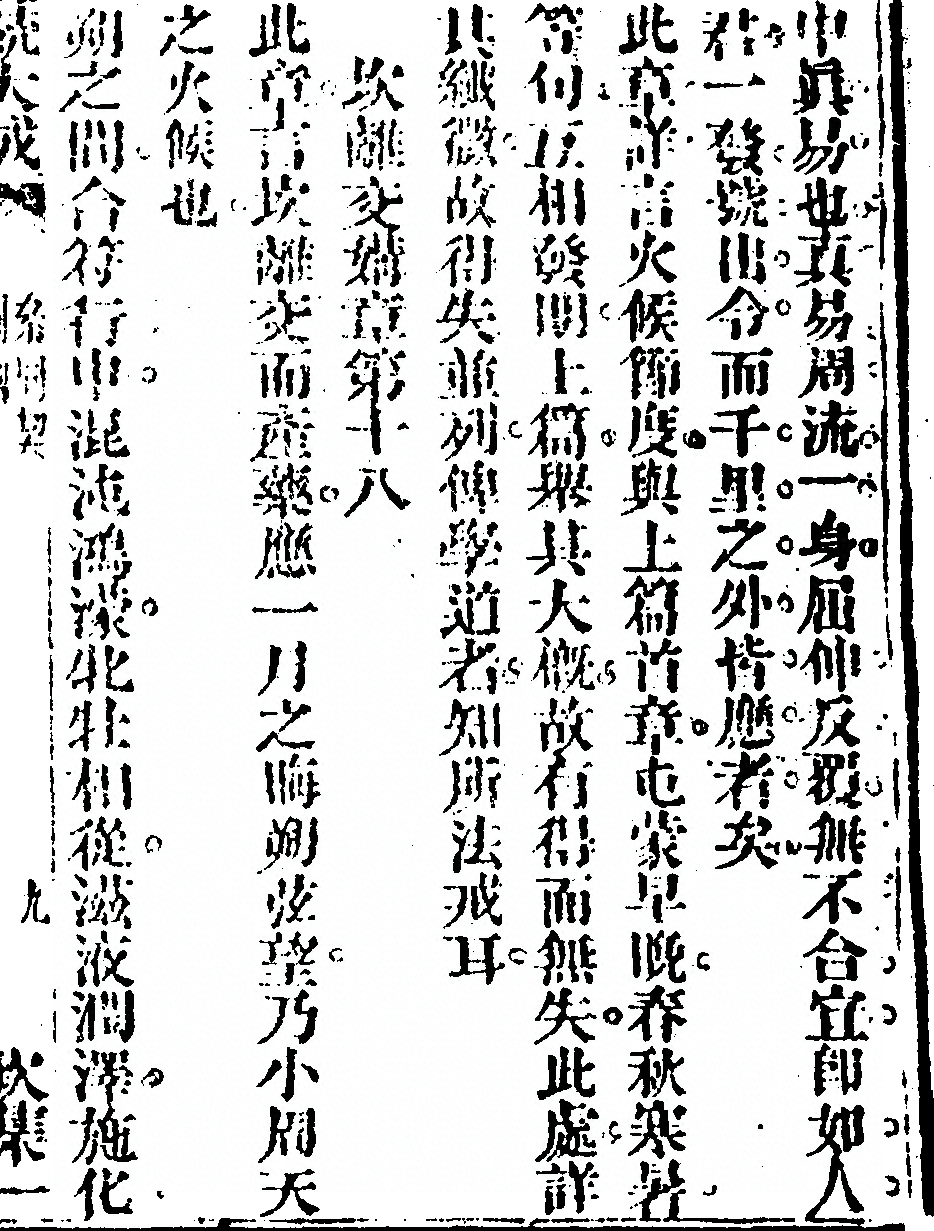 中眞易也眞易周流一身屈伸反覆無不合宜卽如人
君一發號出令而千里之外皆應者矣
此章詳言火候節度與上篇首章屯蒙早晚春秋寒暑
等句互相發明上篇舉其大槪故有得而無失此處詳
其纖微故得失並列俾學道者知所法戒耳
坎離交媾章第十八
此章言坎離交而產藥應一月之晦朔弦望乃小周天
之火候也
朔之間合符行中混沌鴻濛牝牡相從滋液潤澤施化
九
坎集一